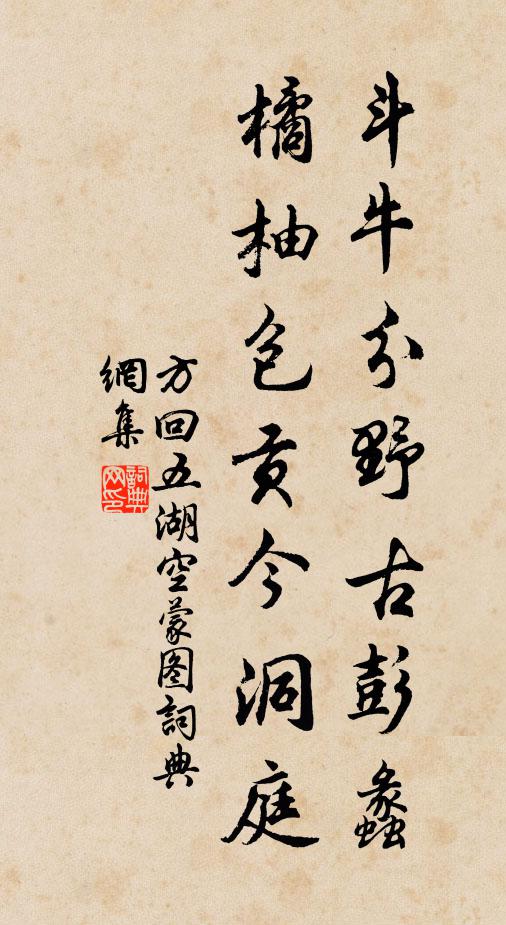 斗牛分野古彭蠡
橘柚包贡今洞庭
方回五湖空蒙图詞典
網集
詞典网印